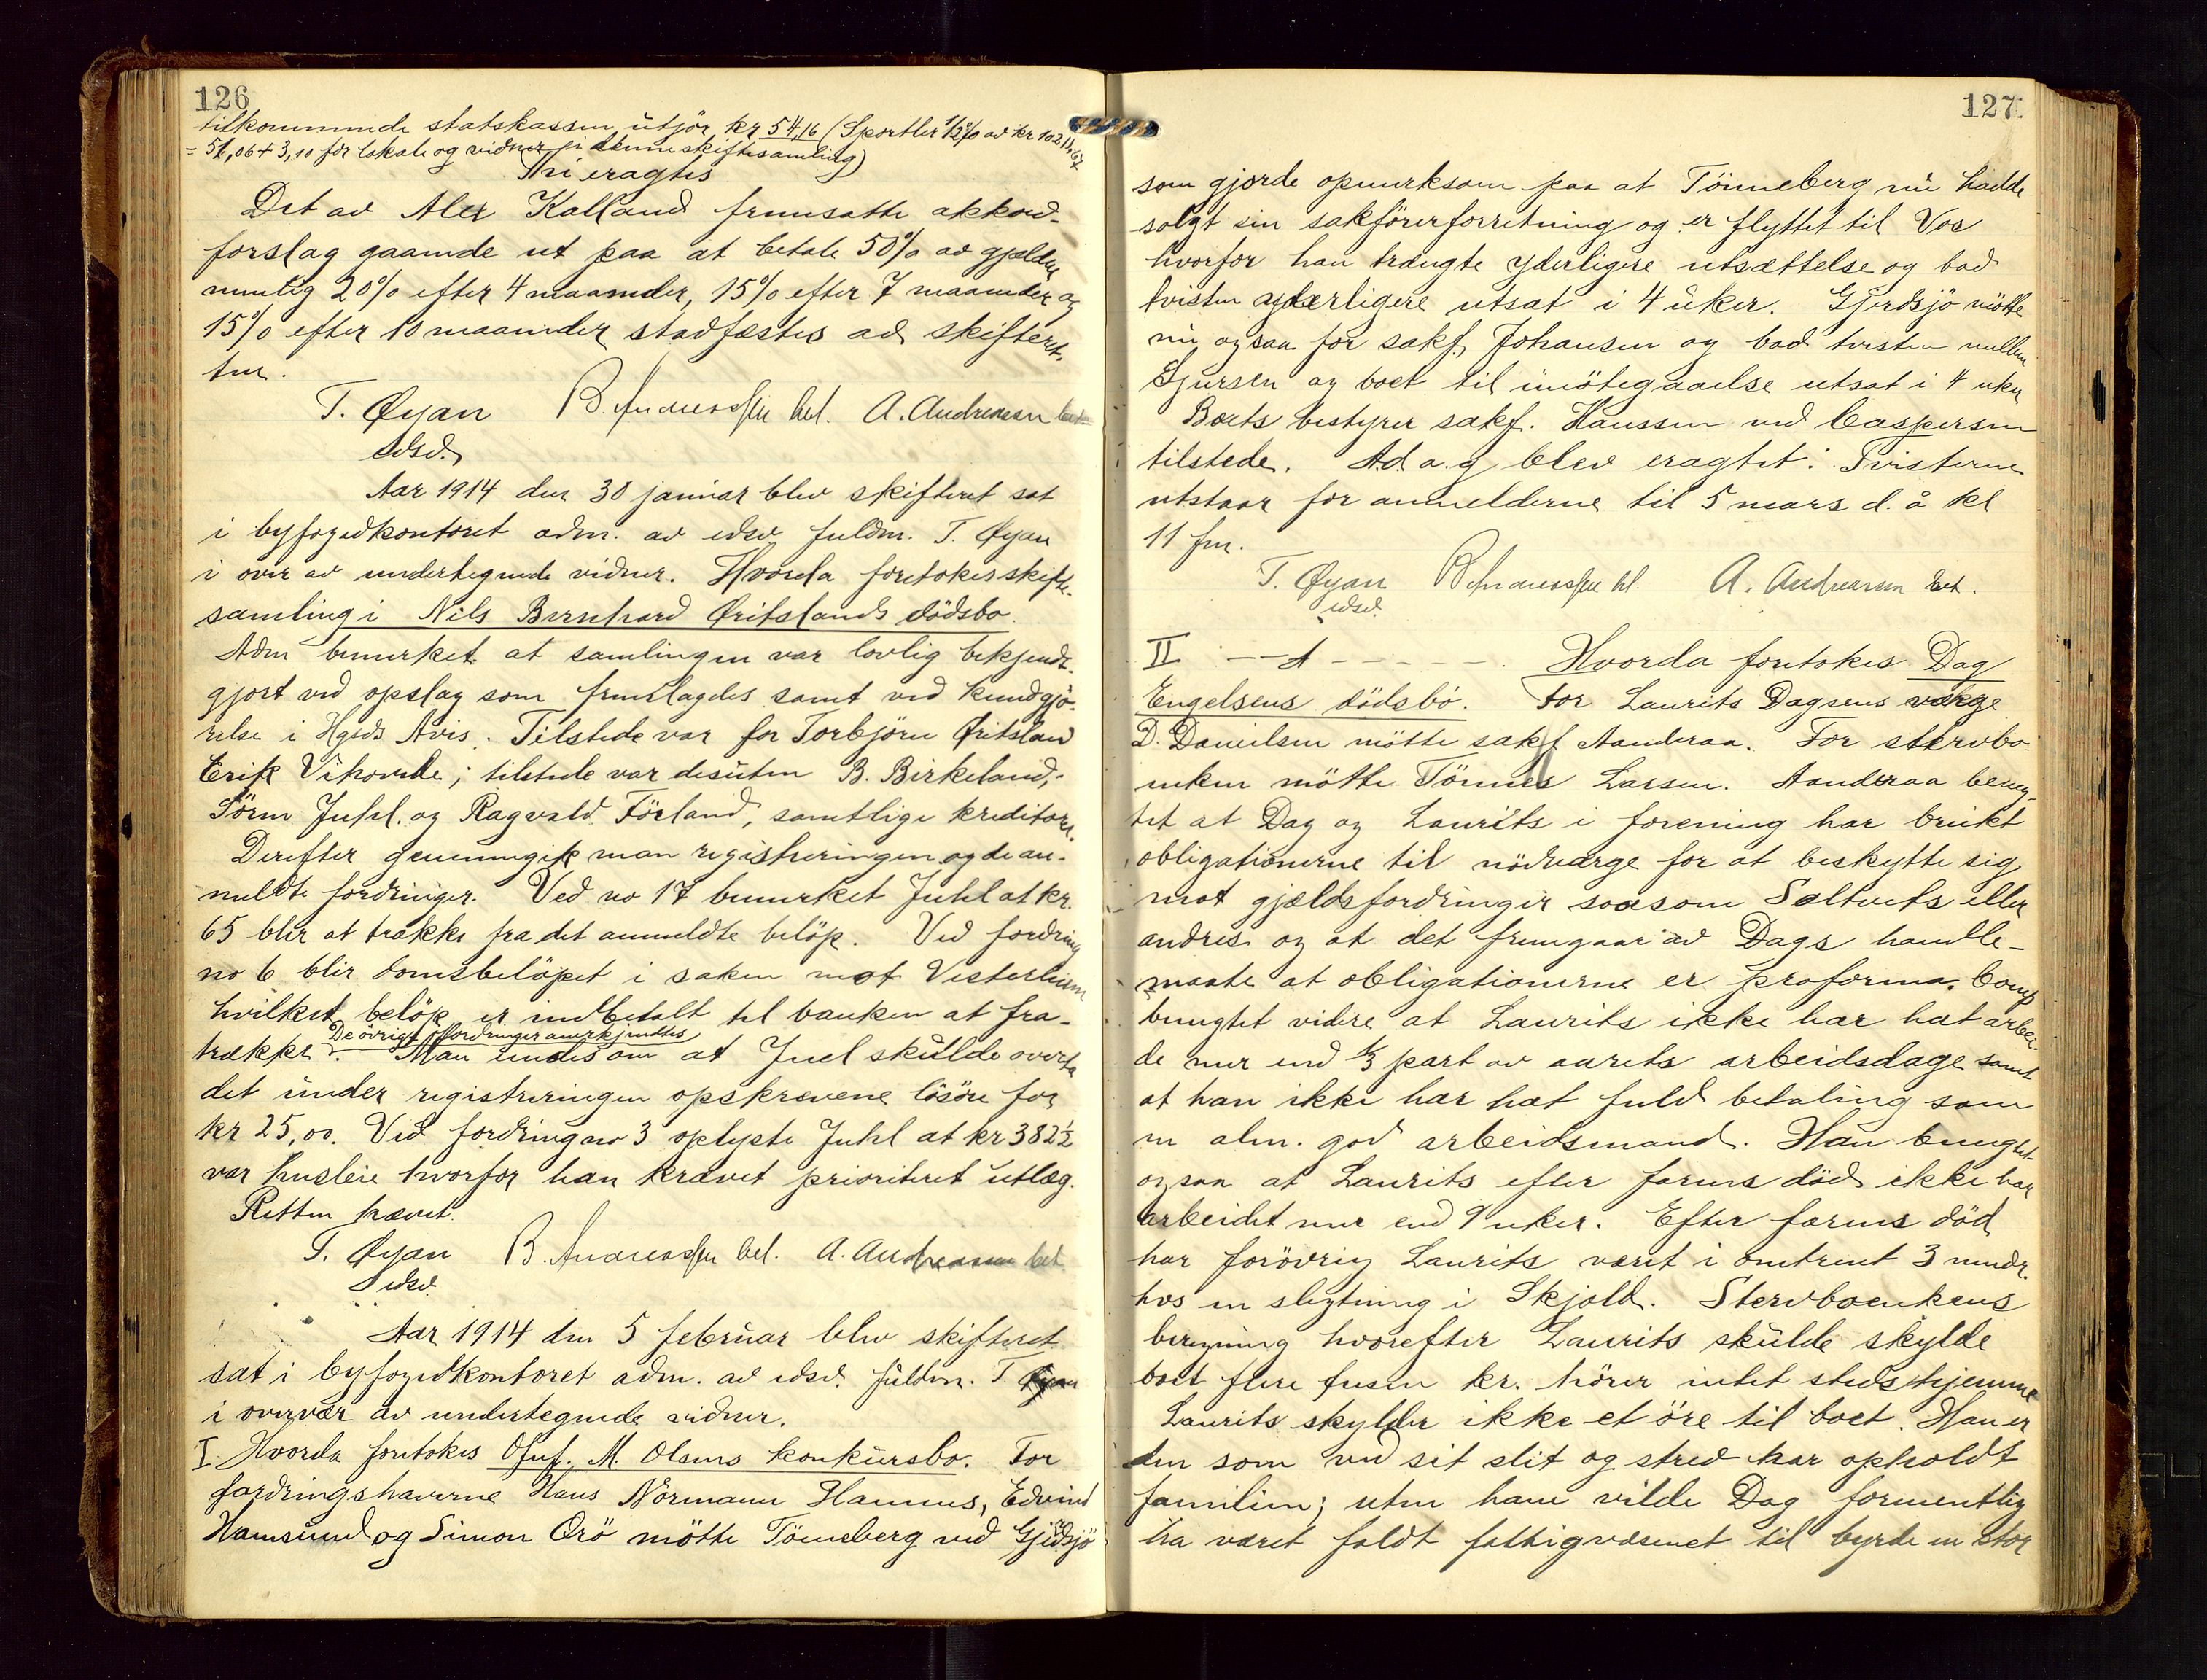 126
tilkommende statskassen utjör kr 54,16 (Sportler 1/2% av kr 10211,67
= 51,06 + 3,10 for lokale og vidner i denne skiftesamling)
Thi eragtes
Det av Alex Kalland fremsatte akkord-
forslag gaaende ut paa at betale 50% av gjælden
nemlig 20% efter 4 maaneder, 15% efter 7 maaneder og
15% efter 10 maaneder stadfæstes av skifteret-
ten.
T. Øyan B. Andreassen bet. A. Andreassen bet
edsv.
Aar 1914 den 30 januar blev skifteret sat
i byfogedkontoret adm. av edsv. fuldm. T. Øyan
i overv av undertegnede vidner. Hvorda foretokes skifte-
samling i Nils Bernhard Øritslands dödsbo.
Adm bemerket at samlingen var lovlig bekjendt-
gjort ved opslag som fremlagdes samt ved kundgjö-
relse i Hgsds Avis. Tilstede var for Torbjörn Øritsland
Erik Vikovde; tilstede var desuten B. Birkeland,
Sören Juhl. og Ragvald Förland, samtlige kreditorer.
Derefter gjennemgik man registreringen og de an-
meldte fordringer. Ved no 17 bemerket Juhl at kr.
65 blir at trække fra det anmeldte belöp. Ved fordring
no 6 blir domsbelöpet i saken mot Vesterheim
hvilket belöp er indbetalt til banken at fra-
De övrige fordringer anerkjendtes
trække. Man enedes om at Juel skulde overta
det under registreringen opskrevene lösöre for
kr 25,00. Ved fordring no 3 oplyste Juhl at kr 382 1/2
var husleie hvorfor han krævet prioriteret utlæg.
Retten hævet.
T. Øyan B. Andreassen bet. A. Andreassen bet
edsv.
Aar 1914 den 5 februar blev skifteret
sat i byfogedkontoret adm. av edsv. fuldm. T. Øyan
i overvær av undertegnede vidner.
I. Hvorda foretokes Oluf. M. Olsens konkursbo. For
fordringshaverne Hans Normann Hannus, Edvind
Hamsund og Simon Örö mötte Tönneberg ved Gjerdsjö
127
som gjorde opmerksom paa at Tönneberg nu hadde
solgt sin sakförerforretning og er flyttet til Vos
hvorfor han trængte yderligere utsættelse og bad
tvisten yderligere utsat i 4 uker. Gjerdsjö mötte
nu ogsaa for sakf. Johansen og bad tvisten mellem
Sjursen og boet til imötegaaelse utsat i 4 uker
Boets bestyrer sakf. Hanssen ved Caspersen
tilstede. Ad a.g blev eragtet: Tvisterne
utstaar for anmelderne til 5 mars d. å kl
11 fm.
T. Øyan B Andreassen bet. A. Andreassen bet.
edsv.
II — A - - - - - . Hvorda foretokes Dag
Engelsens dödsbo. For Laurits Dagsens værge
D. Danielsen mötte sakf Aanderaa. For stervbo-
enken mötte Tönnes Larsen. Aanderaa beneg-
tet at Dag og Laurits i forening har brukt
obligationerne til nödværge for at beskytte sig
mot gjældsfordringer saasom Saltveits eller
andres og at det fremgaar av Dags handle-
maate at obligationerne er proforma. Comp
benegtet videre at Laurits ikke har hat arbei-
de mer end 1/3 part av aarets arbeidsdage samt
at han ikke har hat fuld betaling som
en alm. god arbeidsmand. Han benegtet
ogsaa at Laurits efter farens död ikke har
arbeidet mer end 9 uker. Efter farens död
har forövrig Laurits været i omtrent 3 mndr.
hos en slegtning i Skjold. Stervboenkens
beregning hvorefter Laurits skulde skylde
boet flere tusen kr. hörer intet steds hjemme
Laurits skylder ikke et öre til boet. Han er
den som ved sit slit og stred har opholdt
familien; uten ham vilde Dag formentlig
ha været faldt fattigvæsenet til byrde en stor